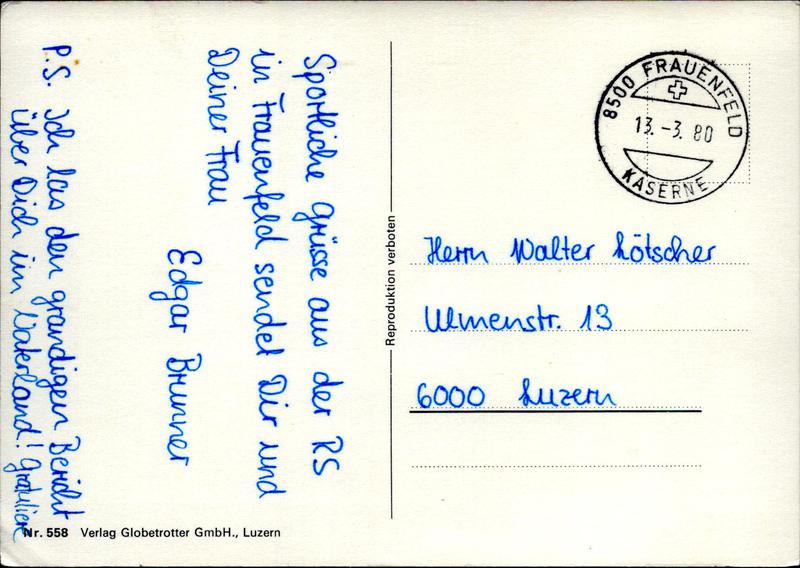 Sportliche Grüsse aus der RS
in Frauenfeld sendet Dir und
Deiner Frau
Edgar Brunner
P.S. Ich las den grandigen Bericht
über Dich im Vaterland! Gratuliere
Nr. 558 Verlag Globetrotter GmbH., Luzern
Reproduktion verboten
8500 FRAUENFELD
13.-3.80
KASERNE
Herrn Walter Lötscher
Ulmenstr. 13
6000 Luzern